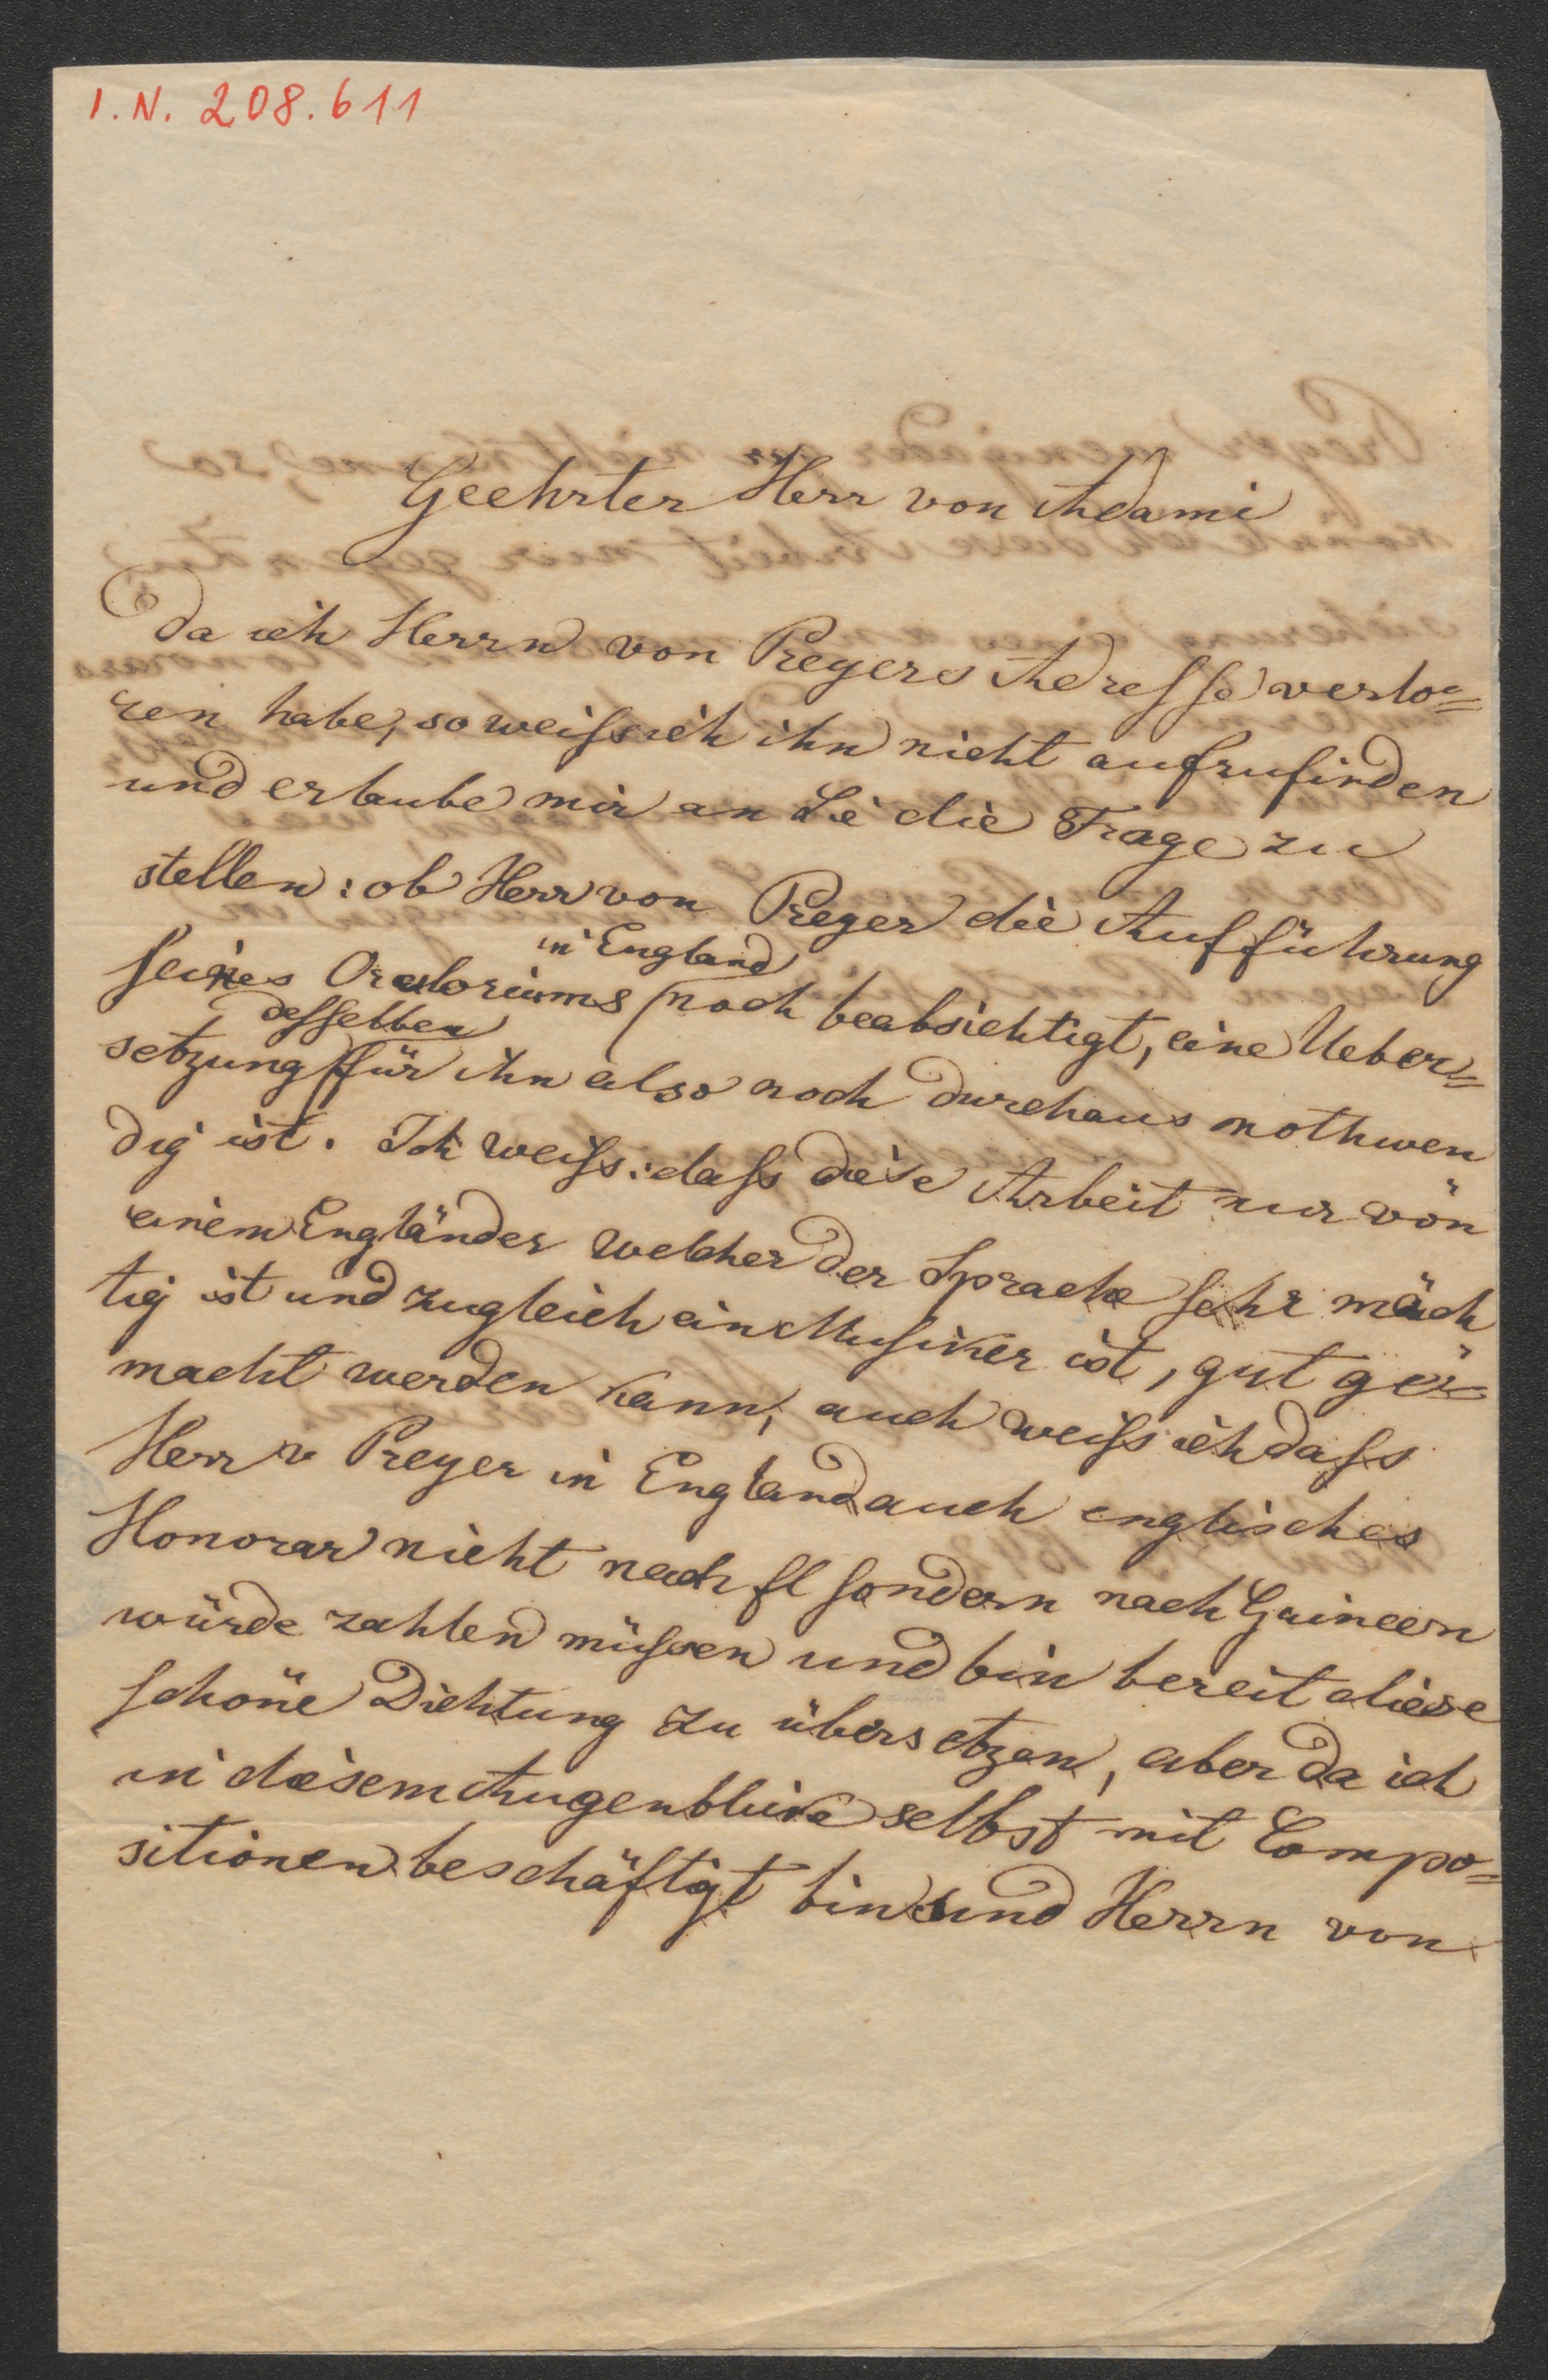 I.N. 208.611
Geehrter Herr von Adami
Da ich Herrn von Preyers Adresse verlo=
ren habe, so weiss ich ihn nicht aufzufinden
und erlaube mir an Sie die Frage zu
stellen: ob Herr von Preyer die Aufführung
in England
seines Oratoriums noch beabsichtigt, eine Ueber=
desselben
setzung für ihn also noch durchaus nothwen
dig ist. Ich weiss: dass diese Arbeit nur von
einem Engländer welcher der Sprache sehr mäch
tig ist und zugleich ein Musiker ist, gut ge=
macht werden kann, auch weiss ich dass
Herr v Preyer in England auch englisches
Honorar nicht nach fl sondern nach Guineen
würde zahlen müssen und bin bereit diese
schöne Dichtung zu übersetzen, aber da ich
in diesem Augenblicke selbst mit Compo=
sitionen beschäftigt bin und Herrn von